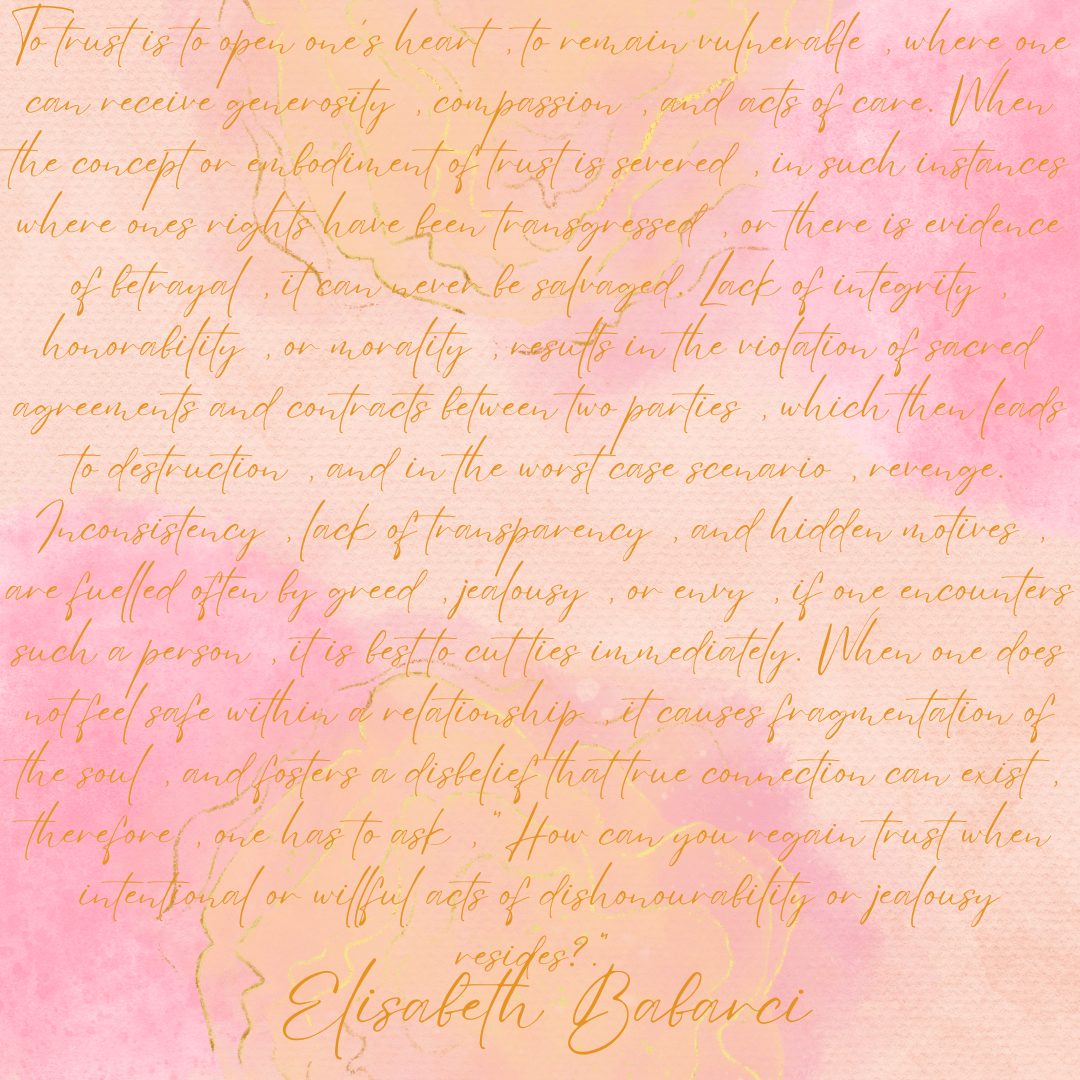 To trust is to open one's heart , to remain vulnerable , where one
can receive generosity , compassion , and acts of care. When
the concept or embodiment of trust is severed , in such instances
where ones rights have been transgressed , or there is evidence
of betrayal , it can never be salvaged. Lack of integrity ,
honorability , or morality , results in the violation of sacred
agreements and contracts between two parties , which then leads
to destruction , and in the worst case scenario , revenge.
Inconsistency , lack of transparency , and hidden motives ,
are fuelled often by greed , jealousy , or envy , if one encounters
such a person , it is best to cut ties immediately. When one does
not feel safe within a relationship , it causes fragmentation of
the soul , and fosters a disbelief that true connection can exist ,
therefore , one has to ask , " How can you regain trust when
intentional or willful acts of dishonourability or jealousy
resides?".
Elisabeth Babarci